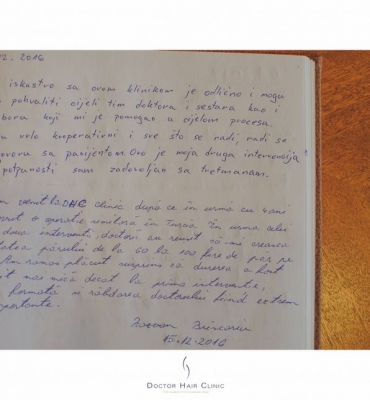 .12. 2016
iskustvo sa ovom klinikom je odlično i mogu
pohvaliti cijeli tim doktora i sestara kao i
koji mi je pomogao u cijelom procesu.
u vrlo kooperativni i sve što se radi, radi se
sa pacijentom. Ovo je moja druga intervencija
potpunosti sam zadovoljan sa tretmanom.
venit la DHC clinic după ce în urmă cu 4 ani
o operație în Turcia. În urma celei
doua intervenții, doctorii au reușit să-mi crească
părului de la 60 la 100 fire de păr pe
Am rămas plăcut surprins că durerea a fost
mai mică decât la prima intervenție,
și răbdarea doctorului fiind extrem
15.12.2016
DOCTOR HAIR CLINIC